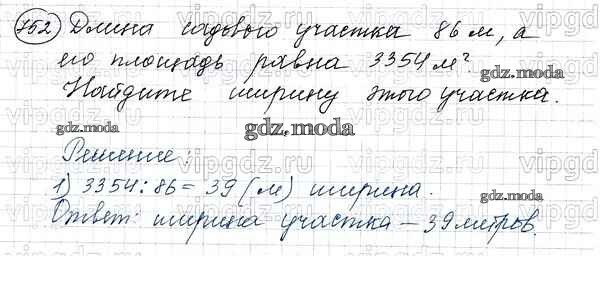 752 Длина садового участка 86 м, а
его площадь равна 3354 м².
Найдите ширину этого участка.
Решение:
1) 3354 : 86 = 39 (м) ширина.
Ответ: ширина участка – 39 метров.
gdz.moda
gdz.moda
gdz.moda
gdz.moda
gdz.moda
vipgdz.ru
vipgdz.ru
vipgdz.ru